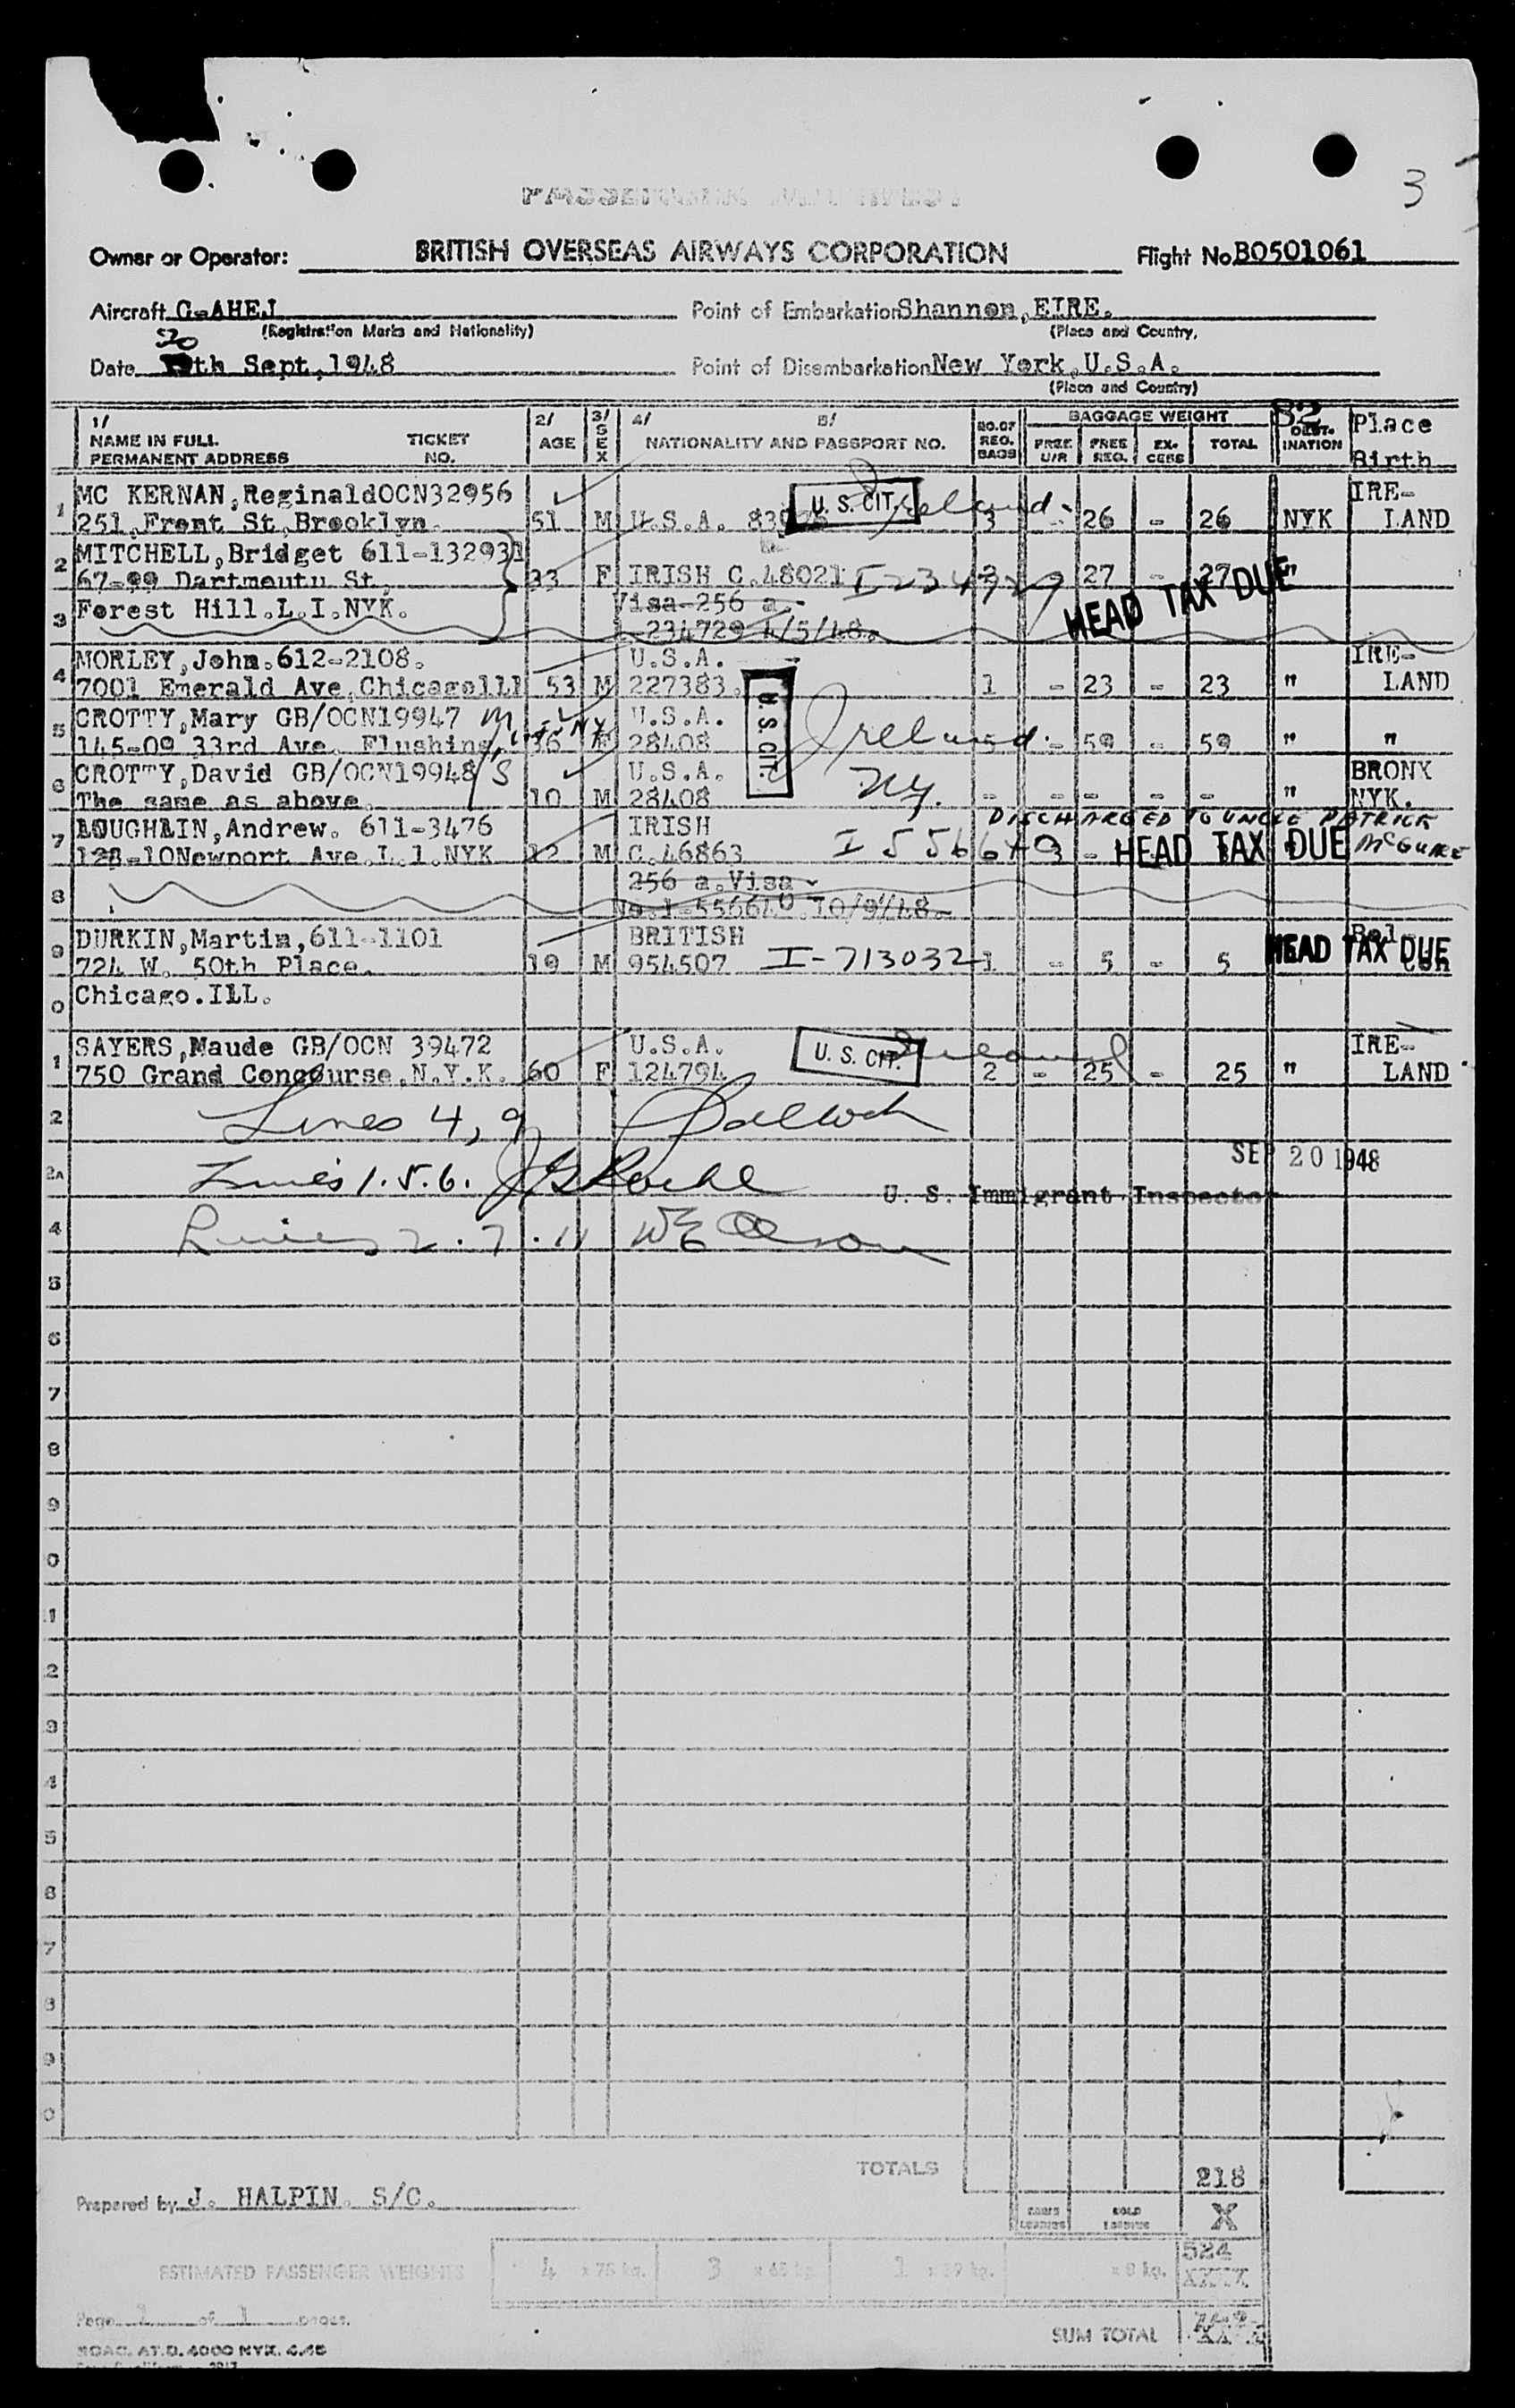 3
Owner or Operator: BRITISH OVERSEAS AIRWAYS CORPORATION Flight No BO501061
Aircraft G-AHEJ Point of Embarkation Shannon, EIRE.
(Registration Marks and Nationality) (Place and Country,
20
Date th Sept, 1948 Point of Disembarkation New York, U.S.A.
(Place and Country)
1/ NAME IN FULL PERMANENT ADDRESS TICKET NO. 2/ AGE 3/ SEX 4/ 5/ NATIONALITY AND PASSPORT NO. NO. OF REG. BAGS BAGGAGE WEIGHT FREE U/R FREE REG. EX-CESS TOTAL 82 DEST-INATION Place Birth
1 MC KERNAN, Reginald OCN32956 IRE-
251, Front St, Brooklyn. 51 M U.S.A. U. S. CIT. Ireland. 3 - 26 - 26 NYK LAND
2 MITCHELL, Bridget 611-132931
67-99 Dartmouth St. 33 F IRISH C.48021 I 234729 27 - 27 "
HEAD TAX DUE
3 Forest Hill. L.I. NYK. Visa-256 a.
234729 4/5/48.
4 MORLEY, John. 612-2108. U.S.A. IRE-
7001 Emerald Ave, Chicago Ill 53 M 227383. 1 - 23 - 23 " LAND
5 CROTTY, Mary GB/OCN19947 U.S.A.
145-09 33rd Ave. Flushing. 36 F 28408 U. S. CIT. Ireland. 5 - 59 - 59 " "
6 CROTTY, David GB/OCN19948 U.S.A. BRONX
The same as above. 10 M 28408 NY. - - - - - " NYK.
DISCHARGED TO UNCLE PATRICK MCGUIRE
7 LOUGHLIN, Andrew. 611-3476 IRISH
128-10 Newport Ave. L.I. NYK 12 M C.46863 I 556649 - HEAD TAX DUE
8 256 a. Visa
No. I-556640 10/9/48.
9 DURKIN, Martin, 611-1101 BRITISH
724 W. 50th Place. 19 M 954507 I-713032 1 - 5 - 5 HEAD TAX DUE
0 Chicago. ILL.
1 SAYERS, Maude GB/OCN 39472 U.S.A. IRE-
750 Grand Concourse, N.Y.K. 60 F 124794 U. S. CIT. Ireland 2 - 25 - 25 " LAND
2 Lines 4, 9
SEP 20 1948
Lines 1. 5. 6.
U. S. Immigrant Inspector
4 Lines 2. 7. 11
5
6
7
8
9
0
1
2
3
4
5
6
7
8
9
0
TOTALS 218
Prepared by J. HALPIN. S/C.
X
ESTIMATED PASSENGER WEIGHTS 4 x 75 kg. 3 x 65 kg. 1 x 39 kg. x 8 kg. 524
Page 1 of 1 pages.
SUM TOTAL